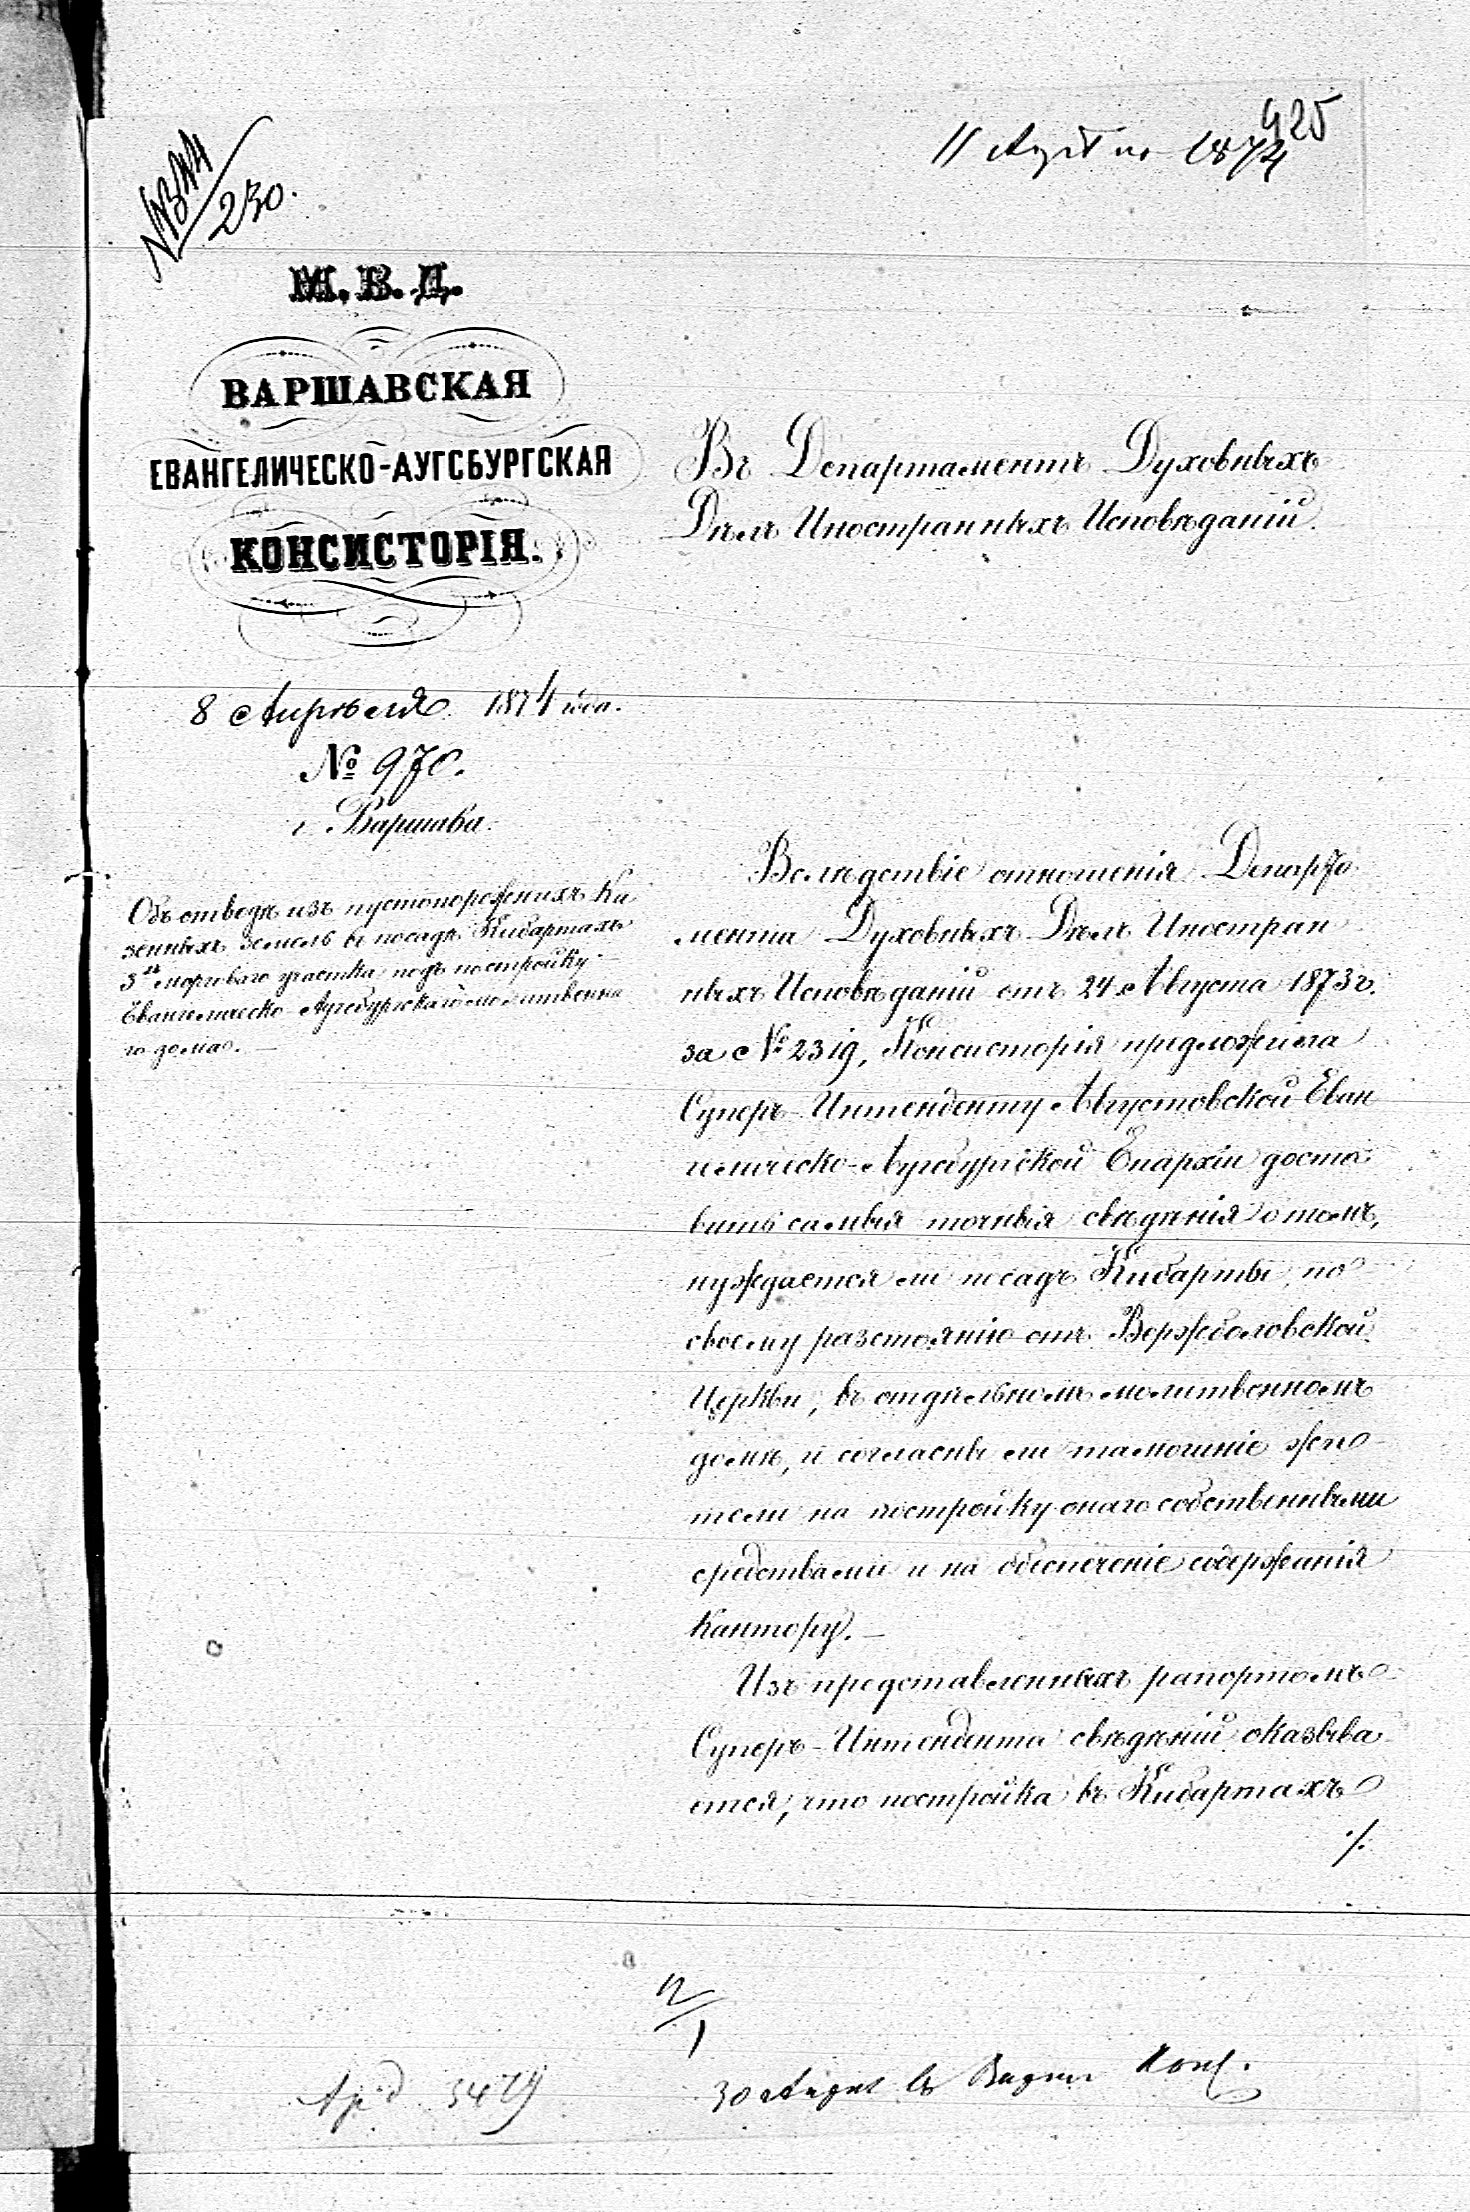 425
11 Апр 1874
№1344/230.
М. В. Д.
ВАРШАВСКАЯ
ЕВАНГЕЛИЧЕСКО-АУГСБУРГСКАЯ
КОНСИСТОРІЯ.
8 Апрѣля 1874 года.
№ 970.
г. Варшава.
Объ отводѣ изъ пустопорожнихъ Ка
зенныхъ земель въ посадѣ Кибартахъ
3хъ морговаго участка подъ постройку
Евангелическо Аугсбургскаго молитвенна
го дома. —
Въ Департаментъ Духовныхъ
Дѣлъ Иностранныхъ Исповѣданій.
Вслѣдствіе отношенія Департа
мента Духовныхъ Дѣлъ Иностран
ныхъ Исповѣданій отъ 24 Августа 1873 г.
за № 2319, Консисторія предложила
Суперъ-Интенденту Августовской Еван
гелическо-Аугсбургской Епархіи доста
вить самыя точныя свѣдѣнія о томъ,
нуждается ли посадъ Кибарты, по
своему разстоянію отъ Вержболовской
Церкви, въ отдѣльномъ молитвенномъ
домѣ, и согласны ли тамошніе жи
тели на постройку онаго собственными
средствами и на обезпеченіе содержанія
Кантору. —
Изъ представленныхъ рапортомъ
Суперъ-Интендента свѣдѣній оказыва
ется, что постройка въ Кибартахъ
./.
2/1
30 Апрѣл
5479